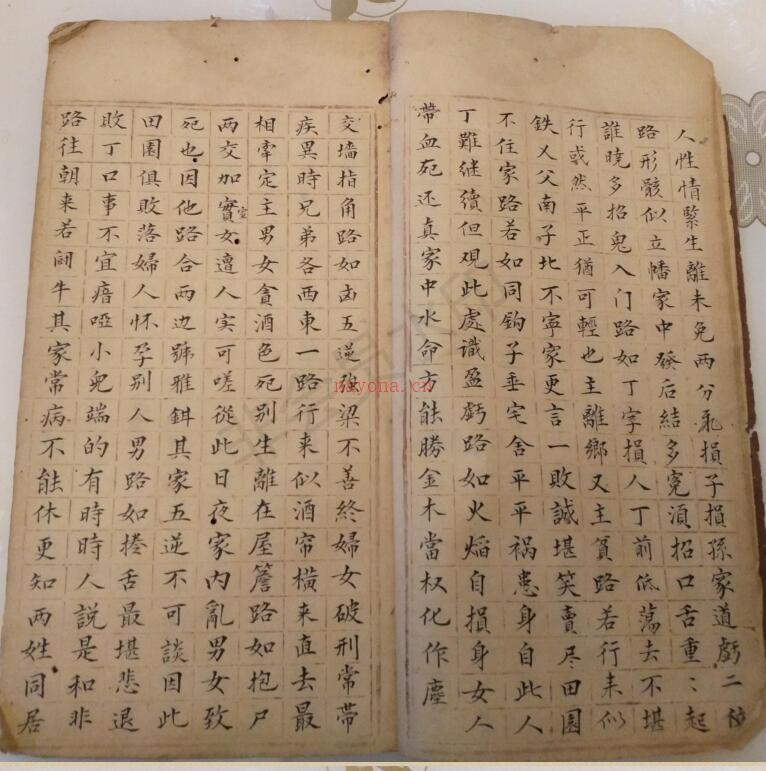 人性情緊生離未免两分乖損子損孫家道虧二位
路形骸似立幡家中發后結多寃湏招口舌重〻起
誰曉多招鬼入门路如丁字損人丁前低蕩去不堪
行或然平正猶可輕也主離鄉又主貧路若行来似
鉄乂父南子北不寧家更言一敗誠堪笑賣尽田園
不住家路若如同鈎子垂宅舍平平祸患身自此人
丁難继續但观此處識盈虧路如火焔自損身女人
帶血死还真家中水命方能勝金木當权化作塵
交墙指角路如卤五逆强梁不善終婦女破刑常帶
疾異時兄弟各西東一路行来似酒帘橫来直去最
相牽定主男女貪酒色死别生離在屋簷路如抱尸
两交加實室女遭人实可嗟從此日夜家内亂男女致
死也因他路合两边號雅鉺其家五逆不可談因此
田園俱敗落婦人怀孕别人男路如捲舌最堪悲退
敗丁口事不宜瘖啞小兒端的有時時人說是和非
路往朝来若闹牛其家常病不能休更知两姓同居
nayona.cn